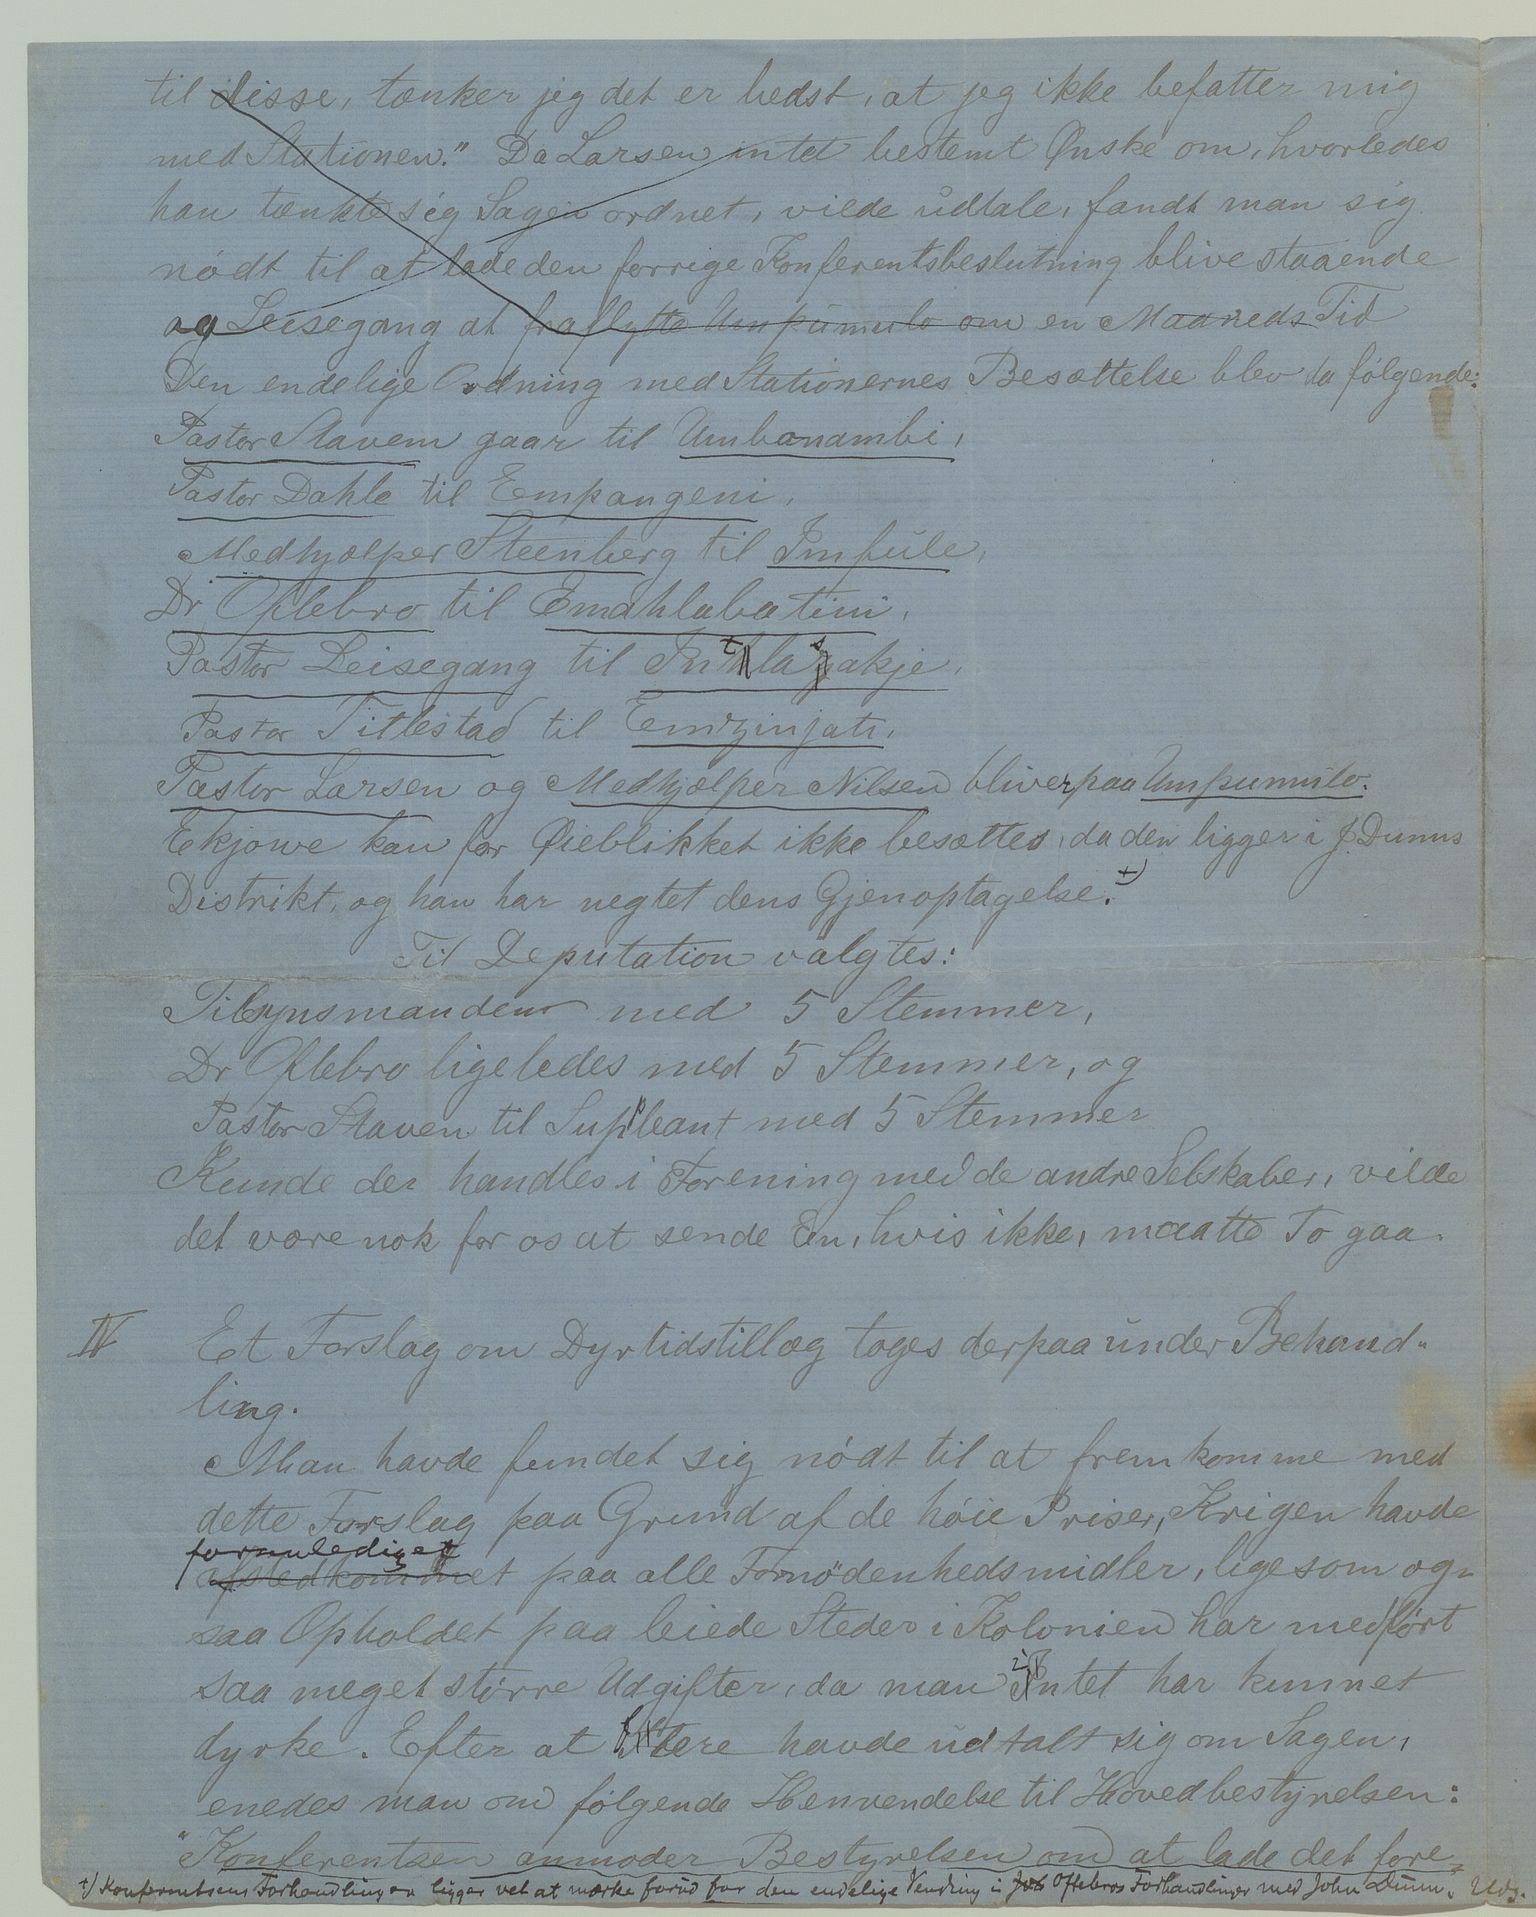 til disse, tænker jeg det er bedst, at jeg ikke befatter mig
med Stationen." Da Larsen intet bestemt Ønske om, hvorledes
han tænkte sig Sagen ordnet, vilde udtale, fandt man sig
nödt til at lade den forrige Konferentsbeslutning blive staaende
og Leisegang at fraflytte Umpumulo om en Maaneds Tid
Den endelige Ordning med Stationernes Besættelse blev da følgende:
Pastor Stavem gaar til Umbonambi,
Pastor Dahle til Empangeni,
Medhjælper Steenberg til Imfule,
Dr Oftebro til Emahlabatini,
Pastor Leisegang til Inthlasakje,
Pastor Titlestad til Emzinjati,
Pastor Larsen og Medhjælper Nilsen bliver paa Umpumulo.
Ekjowe kan for Øieblikket ikke besættes, da den ligger i J. Dunns
Distrikt, og han har negtet dens Gjenoptagelse. +)
Til Deputation valgtes:
Tilsynsmanden med 5 Stemmer,
Dr Oftebro ligeledes med 5 Stemmer, og
Pastor Staven til Suppleant med 5 Stemmer
Kunde der handles i Forening med de andre Selskaber, vilde
det være nok for os at sende En, hvis ikke, maatte To gaa.
IV Et Forslag om Dyrtidstillæg toges derpaa under Behand-
ling.
Man havde fundet sig nödt til at fremkomme med
dette Forslag paa Grund af de høie Priser, Krigen havde
foranlediget
afstedkommet paa alle Fornödenhedsmidler, ligesom og-
saa Opholdet paa leiede Steder i Kolonien har medført
saa meget større Udgifter, da man intet har kunnet
dyrke. Efter at havde udtalt sig om Sagen,
enedes man om følgende Henvendelse til Hovedbestyrelsen:
"Konferentsen anmoder Bestyrelsen om at lade det fore-
+) Konferentsens Forhandlinger ligger vel at mærke forud for den endelige Vending i Oftebros Forhandlinger med John Dunn. Udg.